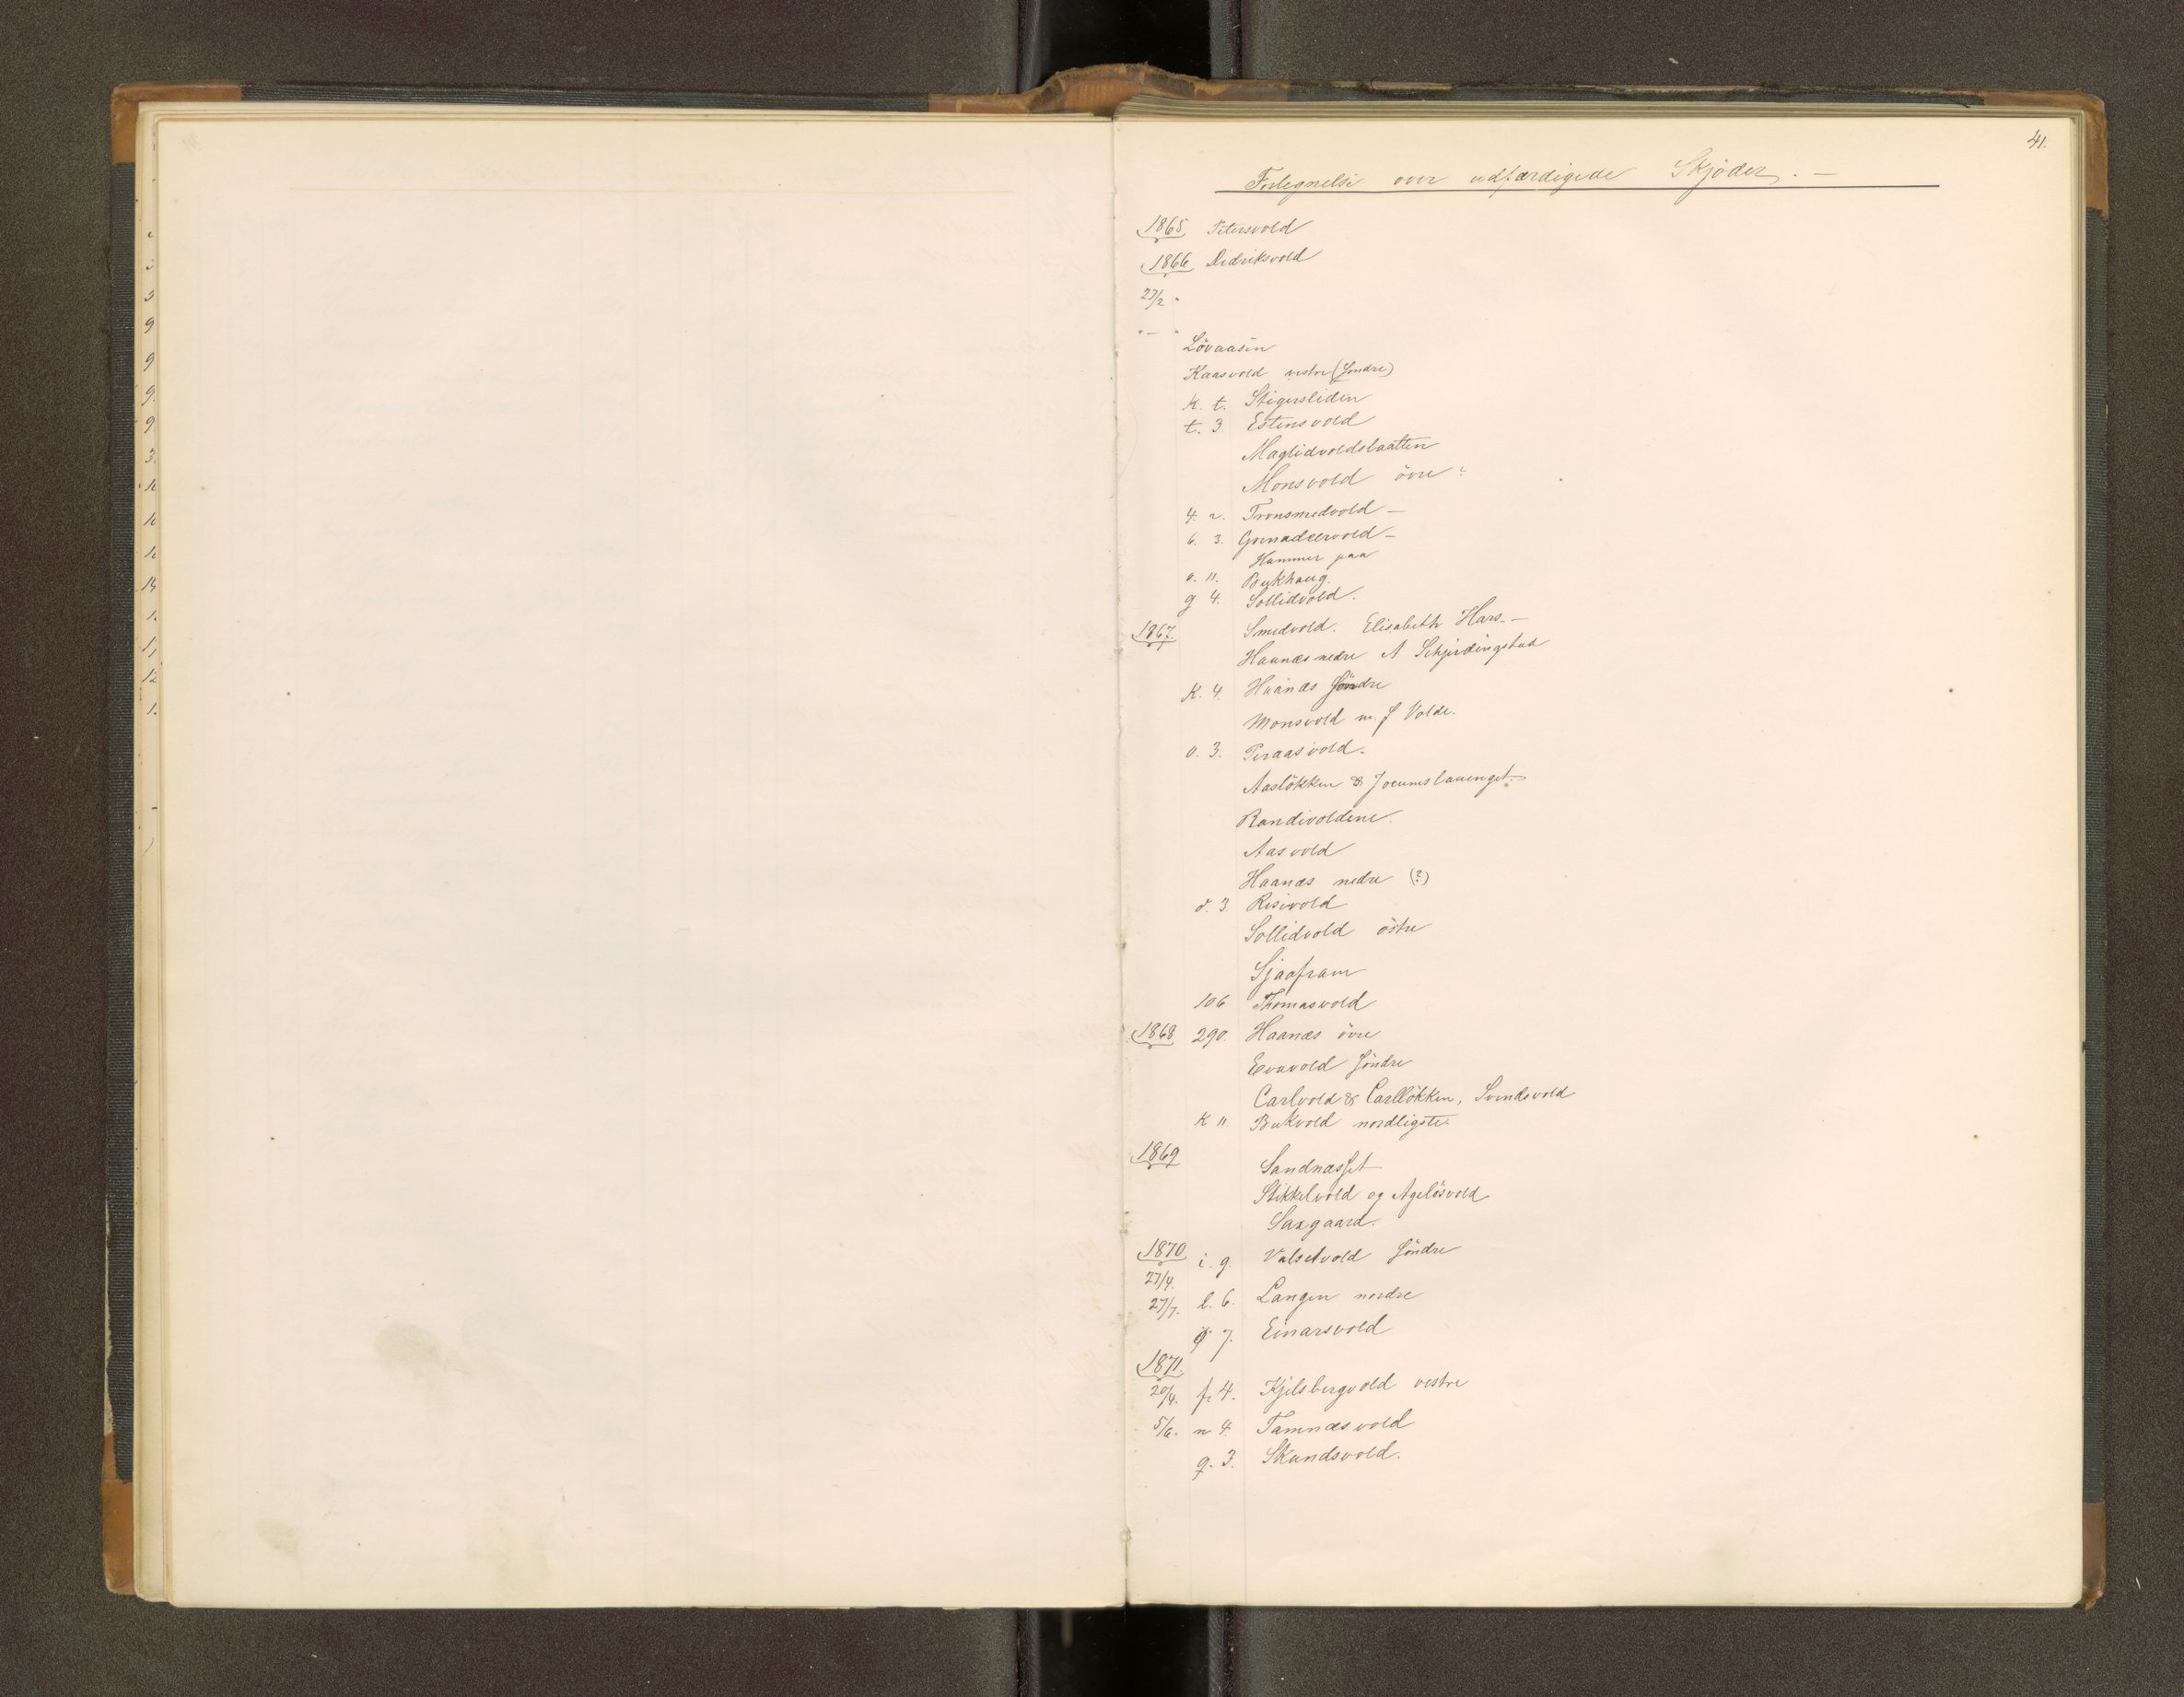 41.
Fortegnelse over udfærdigede Skjöder. —
1865 Petersvold
1866 Didriksvold
27/2 "
" — "
Lövaasen
Kaasvold vestre (söndre)
K. t. Stigersliden
t. 3 Estensvold
Maglidvoldslaatten
Monsvold övre ?
4. r. Tronsmedvold —
6. 3. Grenadeervold —
Hammer paa
o. 11. Bukhaug.
g 4. Sollidvold.
1867. Smedvold. Elisabeth Hars. —
Haanæs nedre A Schjerdingstad
K. 4. Haanæs söndre
Monsvold m. f Volde.
o. 3. Peraasvold.
Aaslökken & Jocumslauenget.
Randivoldene.
Aasvold
Haanæs nedre (?)
d. 3. Risivold
Sollidvold östre
Sjaafram
106 Thomasvold
1868 290. Haanæs övre
Evavold söndre
Carlvold & Carllökken, Svendsvold
K 11. Bukvold nordligste.
1869 Sandnæsset
Stikkelvold og Agelösvold
Saxgaard.
1870 i. 9. Valsetvold söndre
27/4.
27/7. l. 6. Langen nordre
7. Einarsvold
1871.
20/4. f. 4. Kjelsbergvold vestre
5/6. n 4. Tamnæsvold
q. 3. Skundsvold.